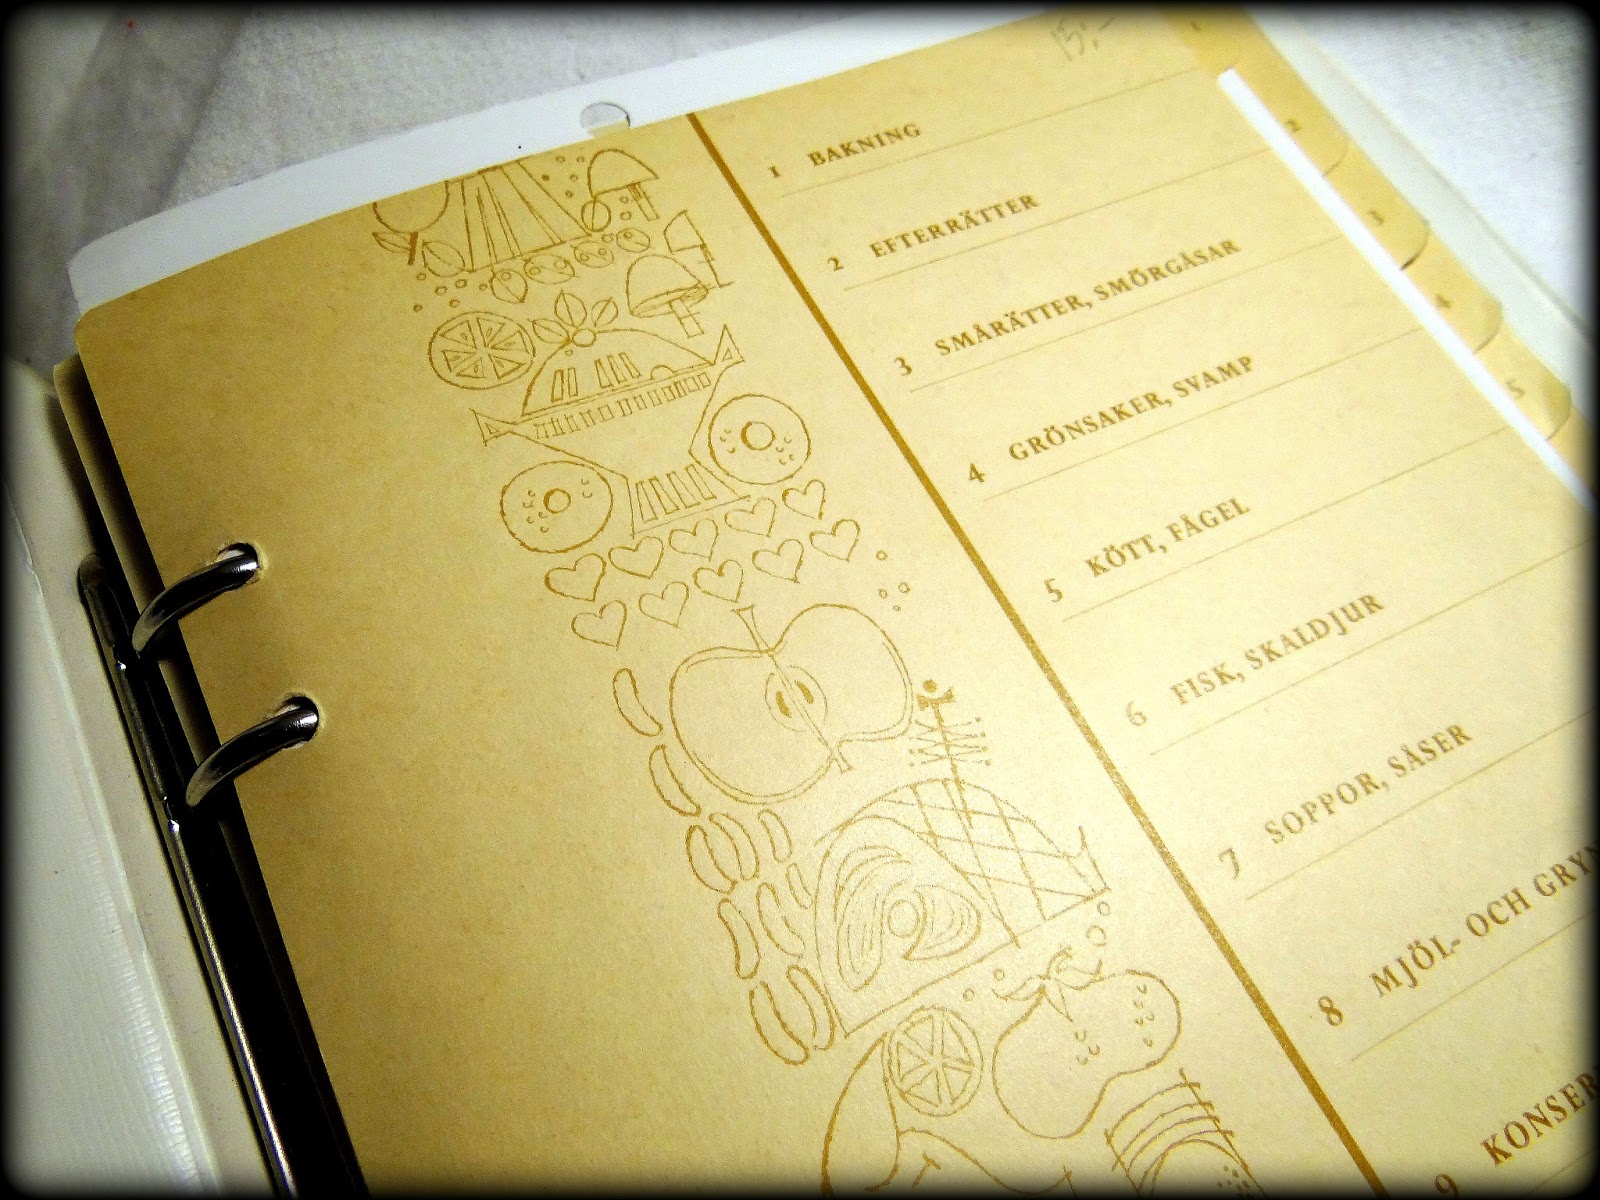 15:-
1 BAKNING
2 EFTERRÄTTER
3 SMÅRÄTTER, SMÖRGÅSAR
4 GRÖNSAKER, SVAMP
5 KÖTT, FÅGEL
6 FISK, SKALDJUR
7 SOPPOR, SÅSER
8 MJÖL- OCH GRYN
9 KONSER
1
2
3
4
5